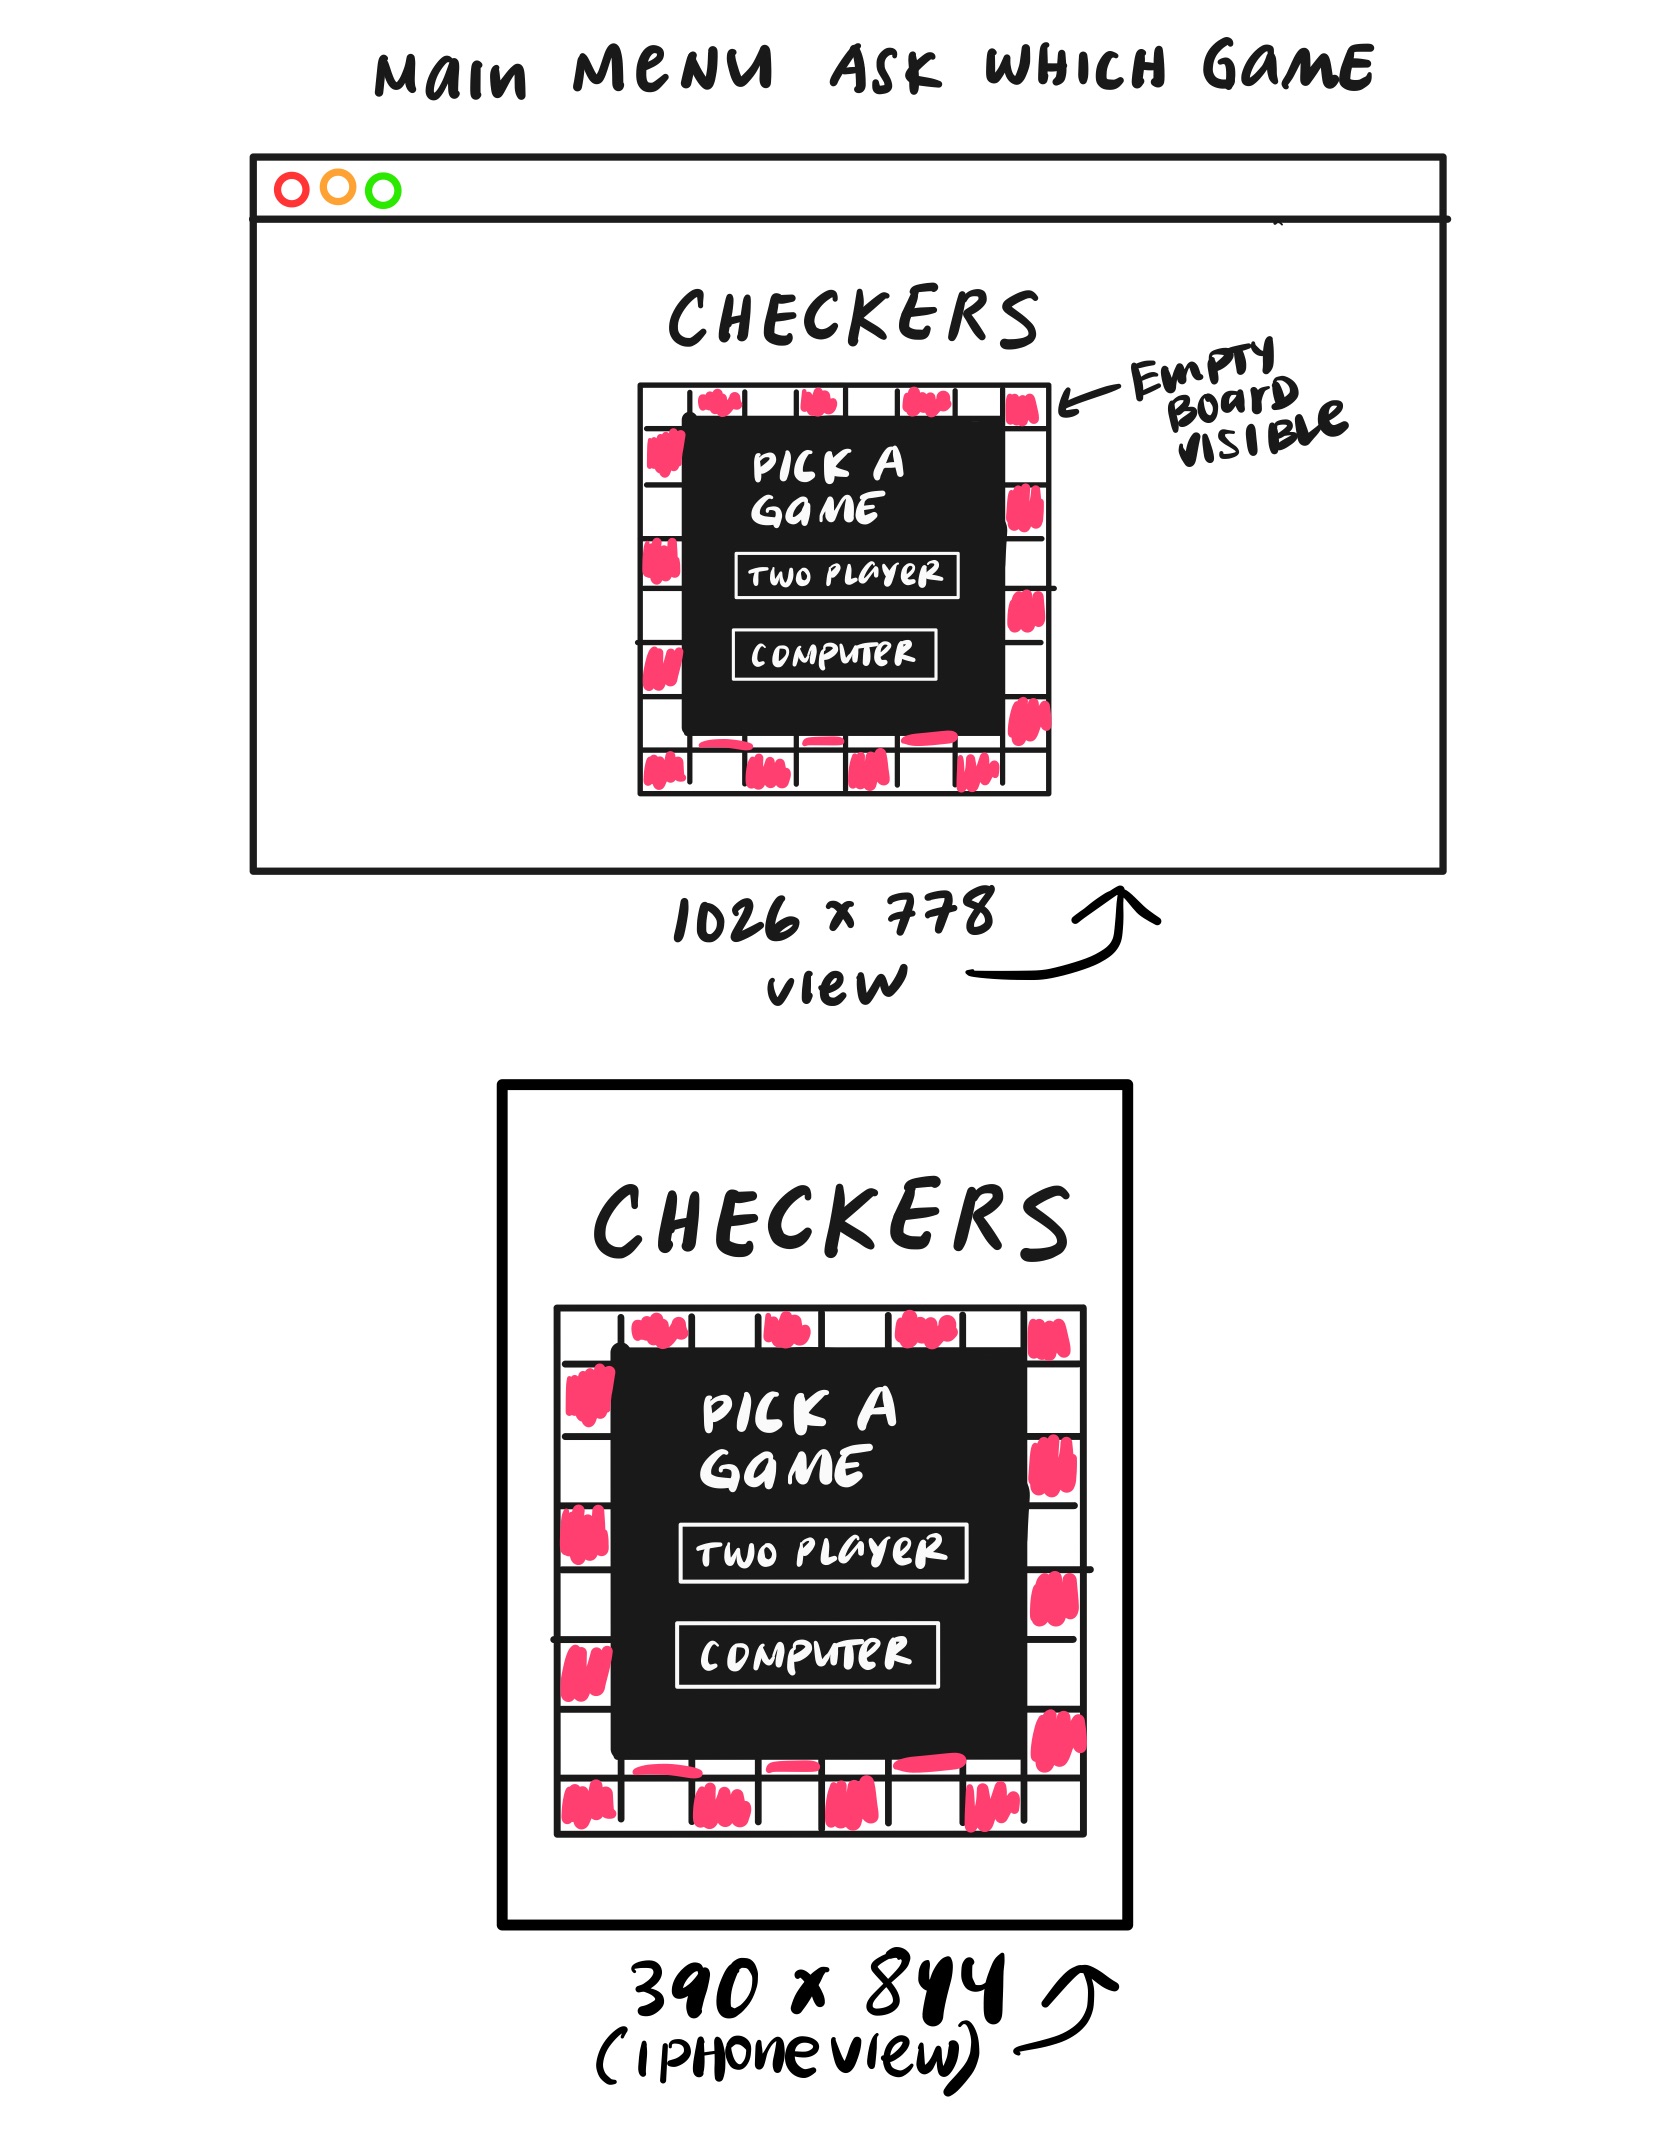 Main MENU ASK WHICH GAME
CHECKERS
EMPTY
BOARD
VISIBLE
PICK A
GAME
TWO PLAYER
COMPUTER
1026 x 778
view
CHECKERS
PICK A
GAME
TWO PLAYER
COMPUTER
390 x 844
(iPHONE VIEW)